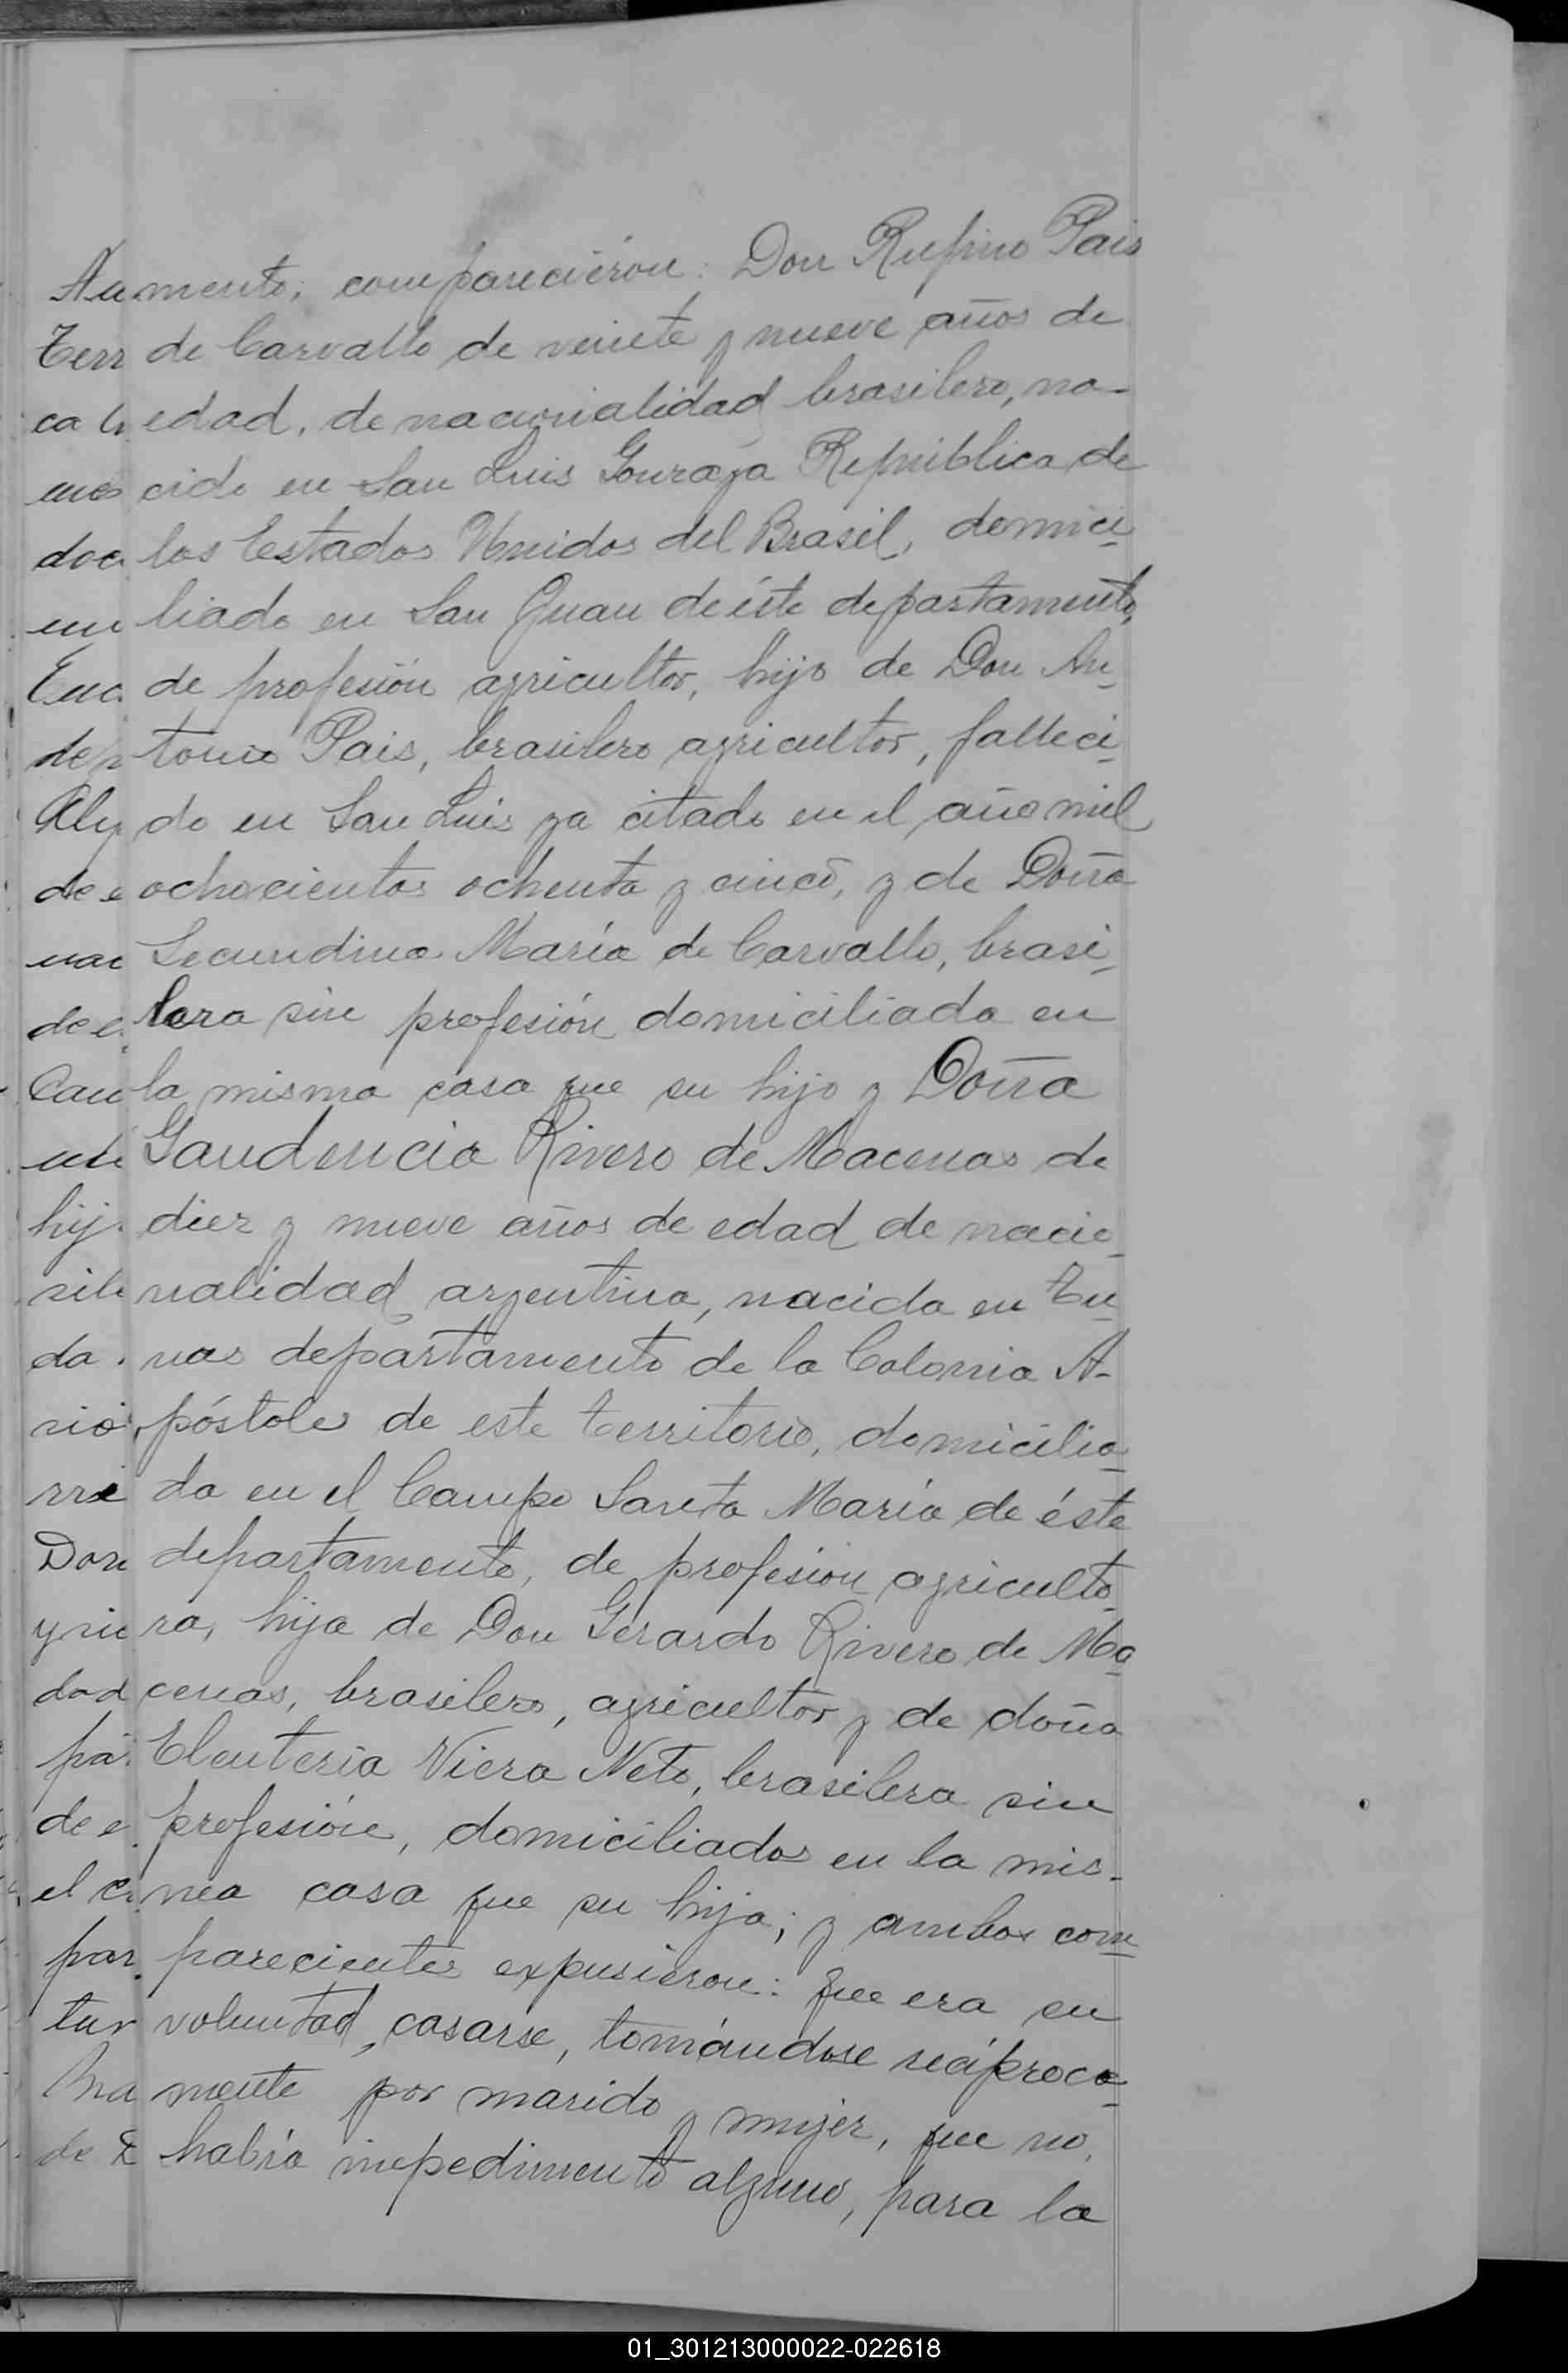 Nu mento; comparecierón: Don Rufino Pais
Terr de Carvallo de veinte y nueve años de
ca b edad, de nacionalidad brasilero, na-
mes cido en San Luis Gonzaga República de
doc los Estados Unidos del Brasil, domici
un liado en San Juan de éste departamento,
Enc de profesión agricultor, hijo de Don An
dep tonio Pais, brasilero agricultor, falleci
Aly do en San Luis ya citado en el año mil
de e ochocientos ochenta y cinco, y de Doña
nac Secundina María de Carvallo, brasi
de e lera sin profesión domiciliada en
Cam la misma casa que su hijo y Doña
un Gaudencia Rivero de Macenas de
hij diez y nueve años de edad de nacio
sile nalidad argentina, nacida en Tu
da nas departamento de la Colonia A-
sió póstoles de este territorio, domicilia
rri da en el Campo Santa María de éste
Don departamento, de profesion agriculto
y sie ra, hija de Don Gerardo Rivero de Ma
dad cenas, brasilero, agricultor y de doña
pa Eleuteria Viera Neto, brasilera sin
de e profesión, domiciliados en la mis-
el c ma casa que su hija; y ambos com
par parecientes expusieron: que era su
tur voluntad, casarse, tomándose recíproca
Bra mente por marido y mujer, que no
de E había impedimento alguno, para la
01_301213000022-022618